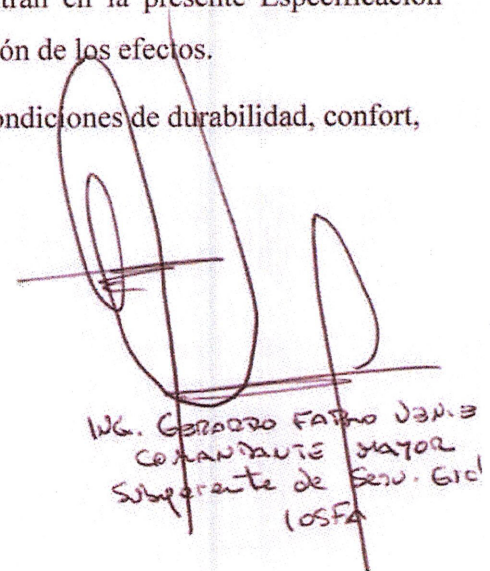 en la presente Especificación
ón de los efectos.
ondiciones de durabilidad, confort,
ING. GERARDO
COMANDANTE MAYOR
Subgerente de Serv. Gral
IOSFA